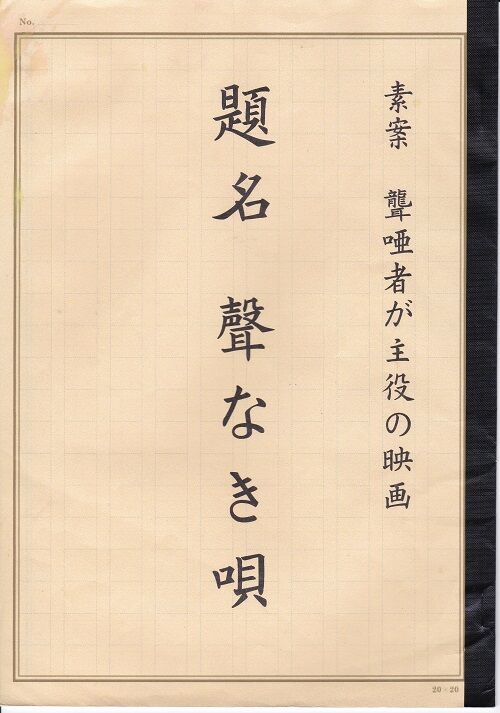 No.
素案　聾唖者が主役の映画
題名　聲なき唄
20×20